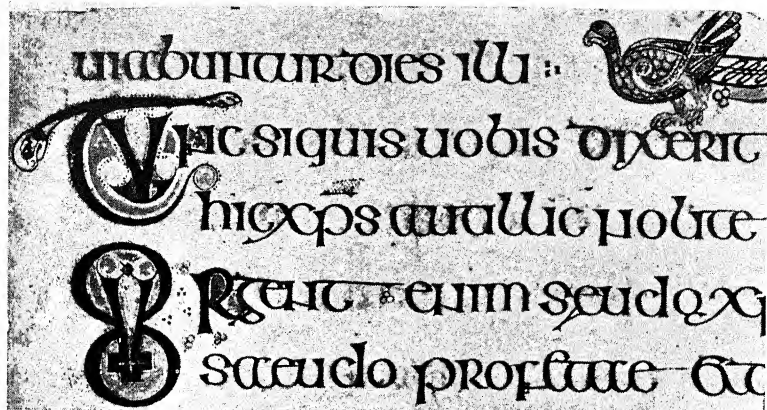 uiabuntur dies illi :
Tunc siquis uobis dixerit
hic xps aut illic nolite
Surgent enim seudo xp
saeudo profetae et